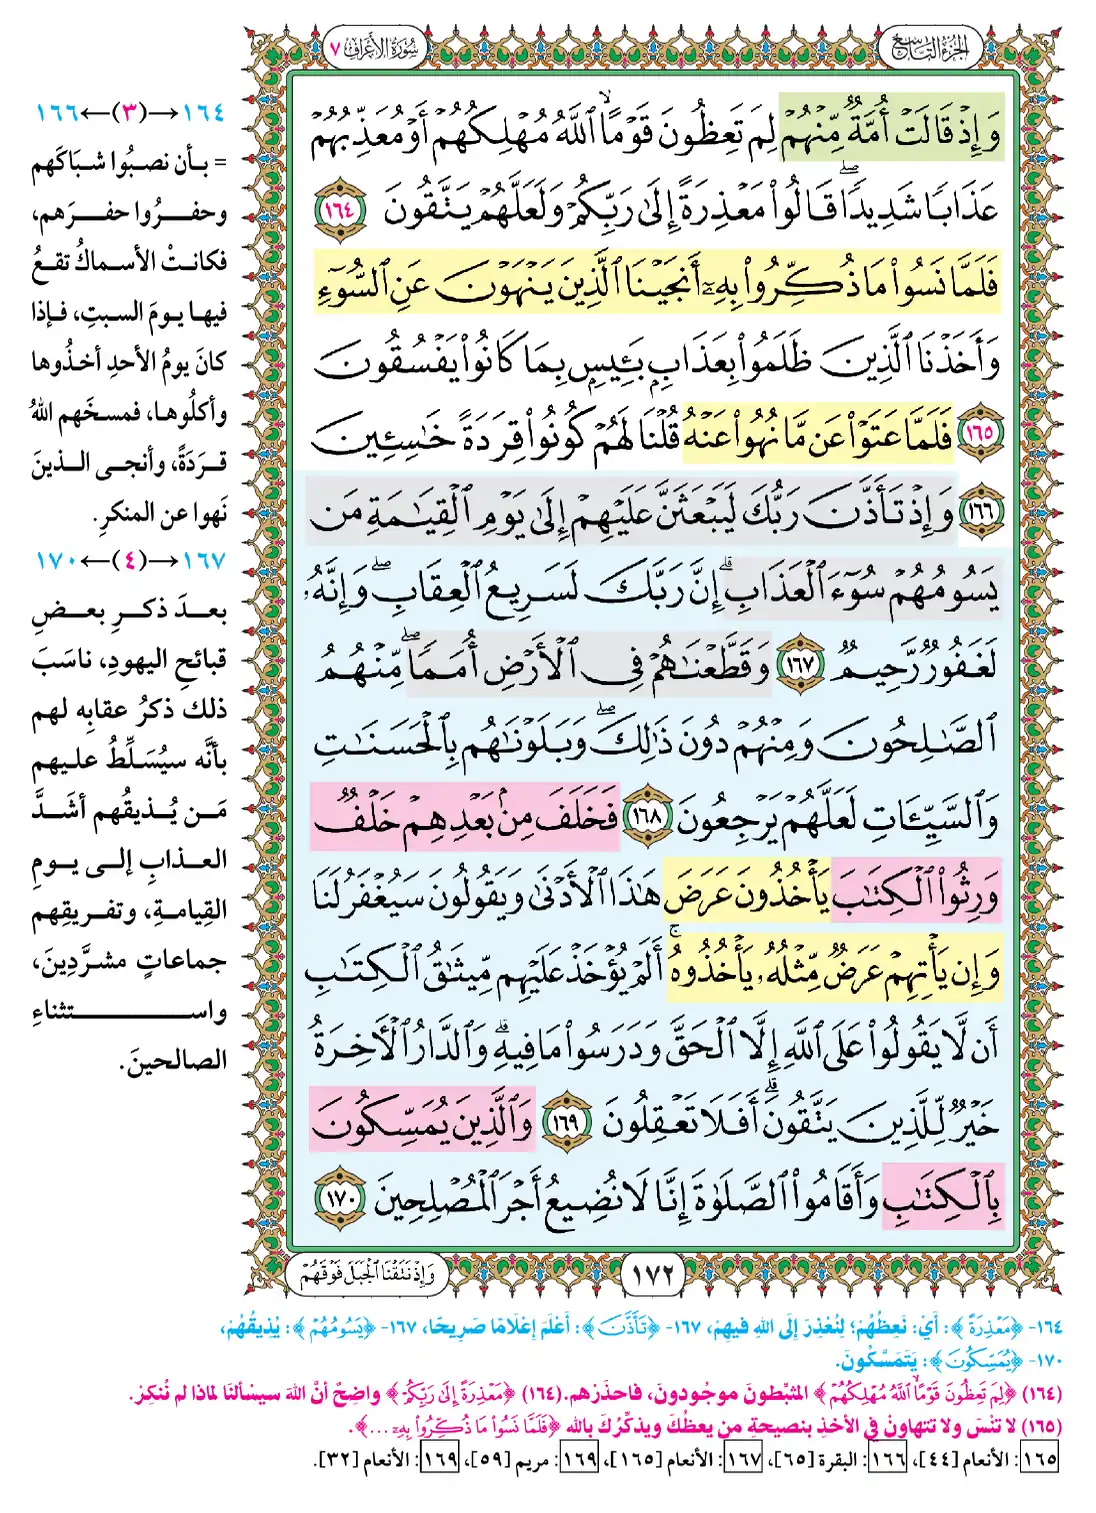 الجزء التاسع
سورة الأعراف ٧
وَإِذۡ قَالَتۡ أُمَّةٞ مِّنۡهُمۡ لِمَ تَعِظُونَ قَوۡمًا ۙ ٱللَّهُ مُهۡلِكُهُمۡ أَوۡ مُعَذِّبُهُمۡ
عَذَابٗا شَدِيدٗاۖ قَالُواْ مَعۡذِرَةً إِلَىٰ رَبِّكُمۡ وَلَعَلَّهُمۡ يَتَّقُونَ ١٦٤
فَلَمَّا نَسُواْ مَا ذُكِّرُواْ بِهِۦٓ أَنجَيۡنَا ٱلَّذِينَ يَنۡهَوۡنَ عَنِ ٱلسُّوٓءِ
وَأَخَذۡنَا ٱلَّذِينَ ظَلَمُواْ بِعَذَابِۭ بَـِٔيسِۭ بِمَا كَانُواْ يَفۡسُقُونَ
١٦٥ فَلَمَّا عَتَوۡاْ عَن مَّا نُهُواْ عَنۡهُ قُلۡنَا لَهُمۡ كُونُواْ قِرَدَةً خَٰسِـِٔينَ
١٦٦ وَإِذۡ تَأَذَّنَ رَبُّكَ لَيَبۡعَثَنَّ عَلَيۡهِمۡ إِلَىٰ يَوۡمِ ٱلۡقِيَٰمَةِ مَن
يَسُومُهُمۡ سُوٓءَ ٱلۡعَذَابِۗ إِنَّ رَبَّكَ لَسَرِيعُ ٱلۡعِقَابِۖ وَإِنَّهُۥ
لَغَفُورٞ رَّحِيمٞ ١٦٧ وَقَطَّعۡنَٰهُمۡ فِي ٱلۡأَرۡضِ أُمَمٗاۖ مِّنۡهُمُ
ٱلصَّٰلِحُونَ وَمِنۡهُمۡ دُونَ ذَٰلِكَۖ وَبَلَوۡنَٰهُم بِٱلۡحَسَنَٰتِ
وَٱلسَّيِّـَٔاتِ لَعَلَّهُمۡ يَرۡجِعُونَ ١٦٨ فَخَلَفَ مِنۢ بَعۡدِهِمۡ خَلۡفٞ
وَرِثُواْ ٱلۡكِتَٰبَ يَأۡخُذُونَ عَرَضَ هَٰذَا ٱلۡأَدۡنَىٰ وَيَقُولُونَ سَيُغۡفَرُ لَنَا
وَإِن يَأۡتِهِمۡ عَرَضٞ مِّثۡلُهُۥ يَأۡخُذُوهُۚ أَلَمۡ يُؤۡخَذۡ عَلَيۡهِم مِّيثَٰقُ ٱلۡكِتَٰبِ
أَن لَّا يَقُولُواْ عَلَى ٱللَّهِ إِلَّا ٱلۡحَقَّ وَدَرَسُواْ مَا فِيهِۗ وَٱلدَّارُ ٱلۡأٓخِرَةُ
خَيۡرٞ لِّلَّذِينَ يَتَّقُونَۚ أَفَلَا تَعۡقِلُونَ ١٦٩ وَٱلَّذِينَ يُمَسِّكُونَ
بِٱلۡكِتَٰبِ وَأَقَامُواْ ٱلصَّلَوٰةَ إِنَّا لَا نُضِيعُ أَجۡرَ ٱلۡمُصۡلِحِينَ ١٧٠
١٧٢
وَإِذۡ نَتَقۡنَا ٱلۡجَبَلَ فَوۡقَهُمۡ
١٦٤→(٣)←١٦٦
= بأن نصبُوا شبَاكَهم
وحفرُوا حفرَهم،
فكانتْ الأسماكُ تقعُ
فيها يومَ السبتِ، فإذا
كانَ يومُ الأحدِ أخذُوها
وأكلُوها، فمسخَهم اللهُ
قرَدَةً، وأنجى الذينَ
نَهوا عن المنكرِ.
١٦٧→(٤)←١٧٠
بعدَ ذكرِ بعضِ
قبائحِ اليهودِ، ناسَبَ
ذلك ذكرُ عقابِه لهم
بأنَّه سيُسَلِّطُ عليهم
مَن يُذيقُهم أشدَّ
العذابِ إلى يومِ
القِيامةِ، وتفريقِهم
جماعاتٍ مشرَّدِينَ،
واستثناءِ
الصالحينَ.
١٦٤- ﴿مَعۡذِرَةً﴾: أَيْ: نَعِظُهُمْ؛ لِنُعْذِرَ إِلَى اللهِ فِيهِمْ، ١٦٧- ﴿تَأَذَّنَ﴾: أَعْلَمَ إِعْلَامًا صَرِيحًا، ١٦٧- ﴿يَسُومُهُمۡ﴾: يُذِيقُهُمْ،
١٧٠- ﴿يُمَسِّكُونَ﴾: يَتَمَسَّكُونَ.
(١٦٤) ﴿لِمَ تَعِظُونَ قَوۡمًا ۙ ٱللَّهُ مُهۡلِكُهُمۡ﴾ المثبِّطونَ موجُودونَ، فاحذَرْهم. (١٦٤) ﴿مَعۡذِرَةً إِلَىٰ رَبِّكُمۡ﴾ واضِحٌ أنَّ اللهَ سيسْألنَا لماذا لم نُنكِرْ.
(١٦٥) لا تنْسَ ولا تتهاونْ في الأخذِ بنصيحةِ من يعظُكَ ويذكِّرُكَ باللهِ ﴿فَلَمَّا نَسُواْ مَا ذُكِّرُواْ بِهِۦٓ ...﴾.
١٦٥: الأنعام [٤٤]، ١٦٦: البقرة [٦٥]، ١٦٧: الأنعام [١٦٥]، ١٦٩: مريم [٥٩]، ١٦٩: الأنعام [٣٢].